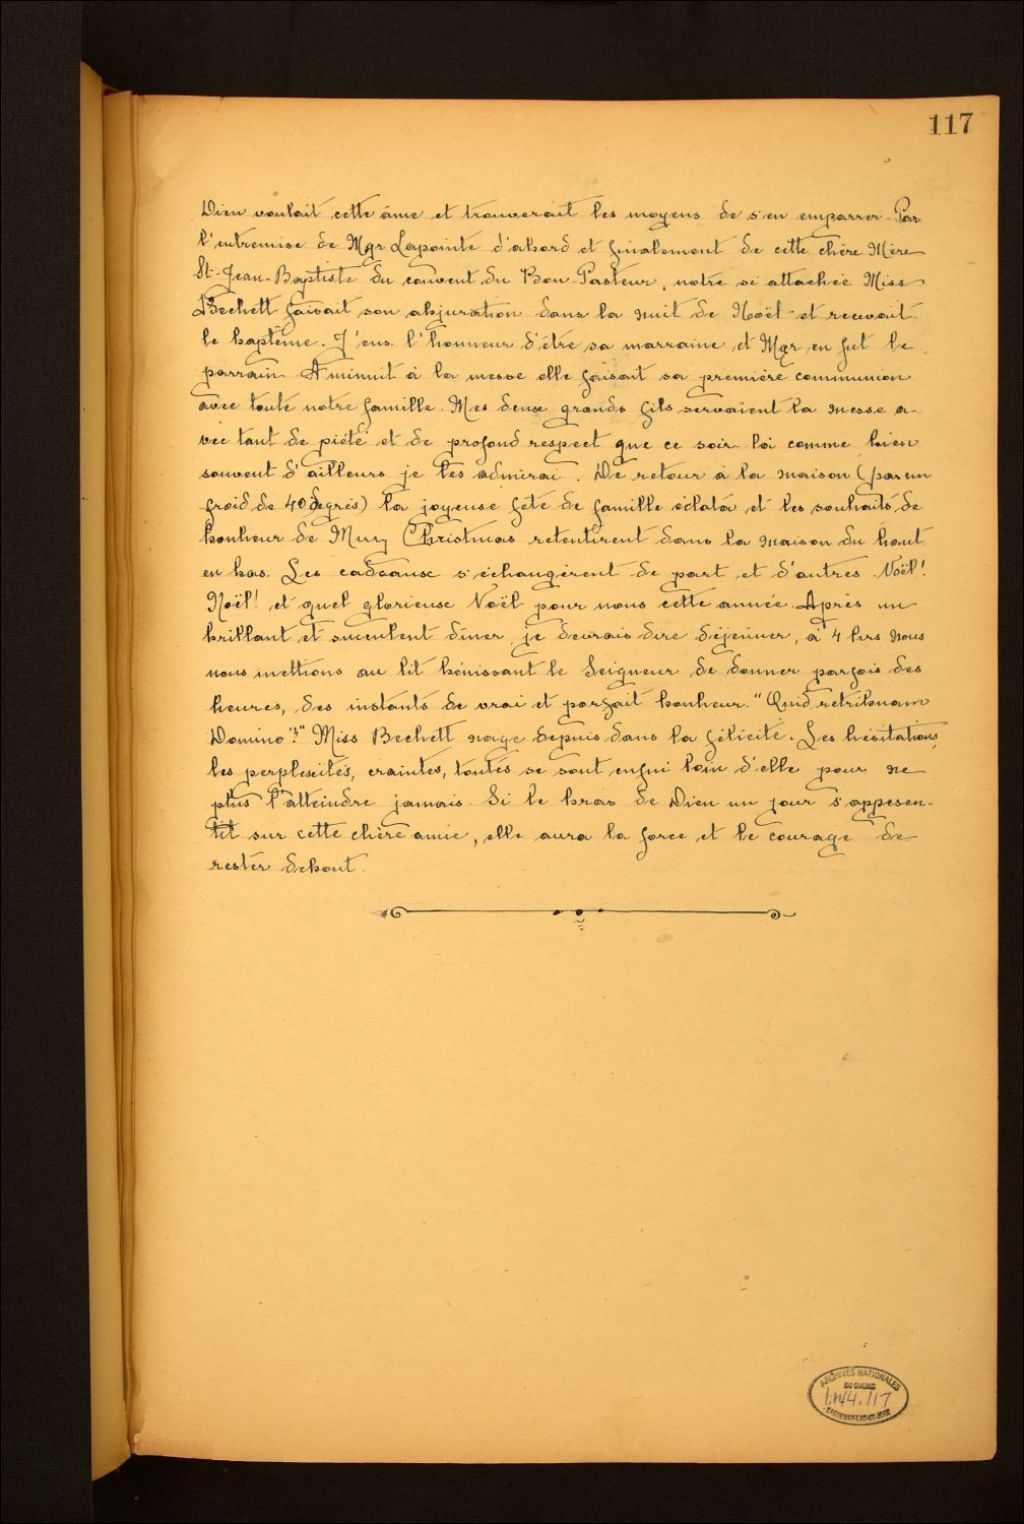 117
Dieu voulait cette âme et trouverait les moyens de s'en emparrer. Par
l'entremise de Mgr Lapointe d'abord et finalement de cette chère Mère
St-Jean-Baptiste du couvent du Bon-Pasteur, notre si attachée Miss
Bechett faisait son abjuration dans la nuit de Noël et recevait
le baptême. J'eus l'honneur d'être sa marraine et Mgr en fut le
parrain. A minuit à la messe elle faisait sa première communion
avec toute notre famille. Mes deux grands fils servaient la messe a-
vec tant de piété et de profond respect que ce soir-là comme bien
souvent d'ailleurs je les admirai. De retour à la maison (par un
froid de 40 degrés) la joyeuse fête de famille éclata et les souhaits de
bonheur de Merry Christmas retentirent dans la maison du haut
en bas. Les cadeaux s'échangèrent de part et d'autres. Noël!
Noël! et quel glorieuse Noël pour nous cette année. Après un
brillant et succulent dîner, je devrais dire déjeûner, à 4 hrs nous
nous mettions au lit bénissant le Seigneur de donner parfois des
heures, des instants de vrai et parfait bonheur. "Quid retribuam
Domino?" Miss Bechett nage depuis dans la félicité. Les hésitations,
les perplexités, craintes, toutes se sont enfui loin d'elle pour ne
plus l'atteindre jamais. Si le bras de Dieu un jour s'appesen-
tit sur cette chère amie, elle aura la force et le courage de
rester debout.
ARCHIVES NATIONALES
DU QUÉBEC
117